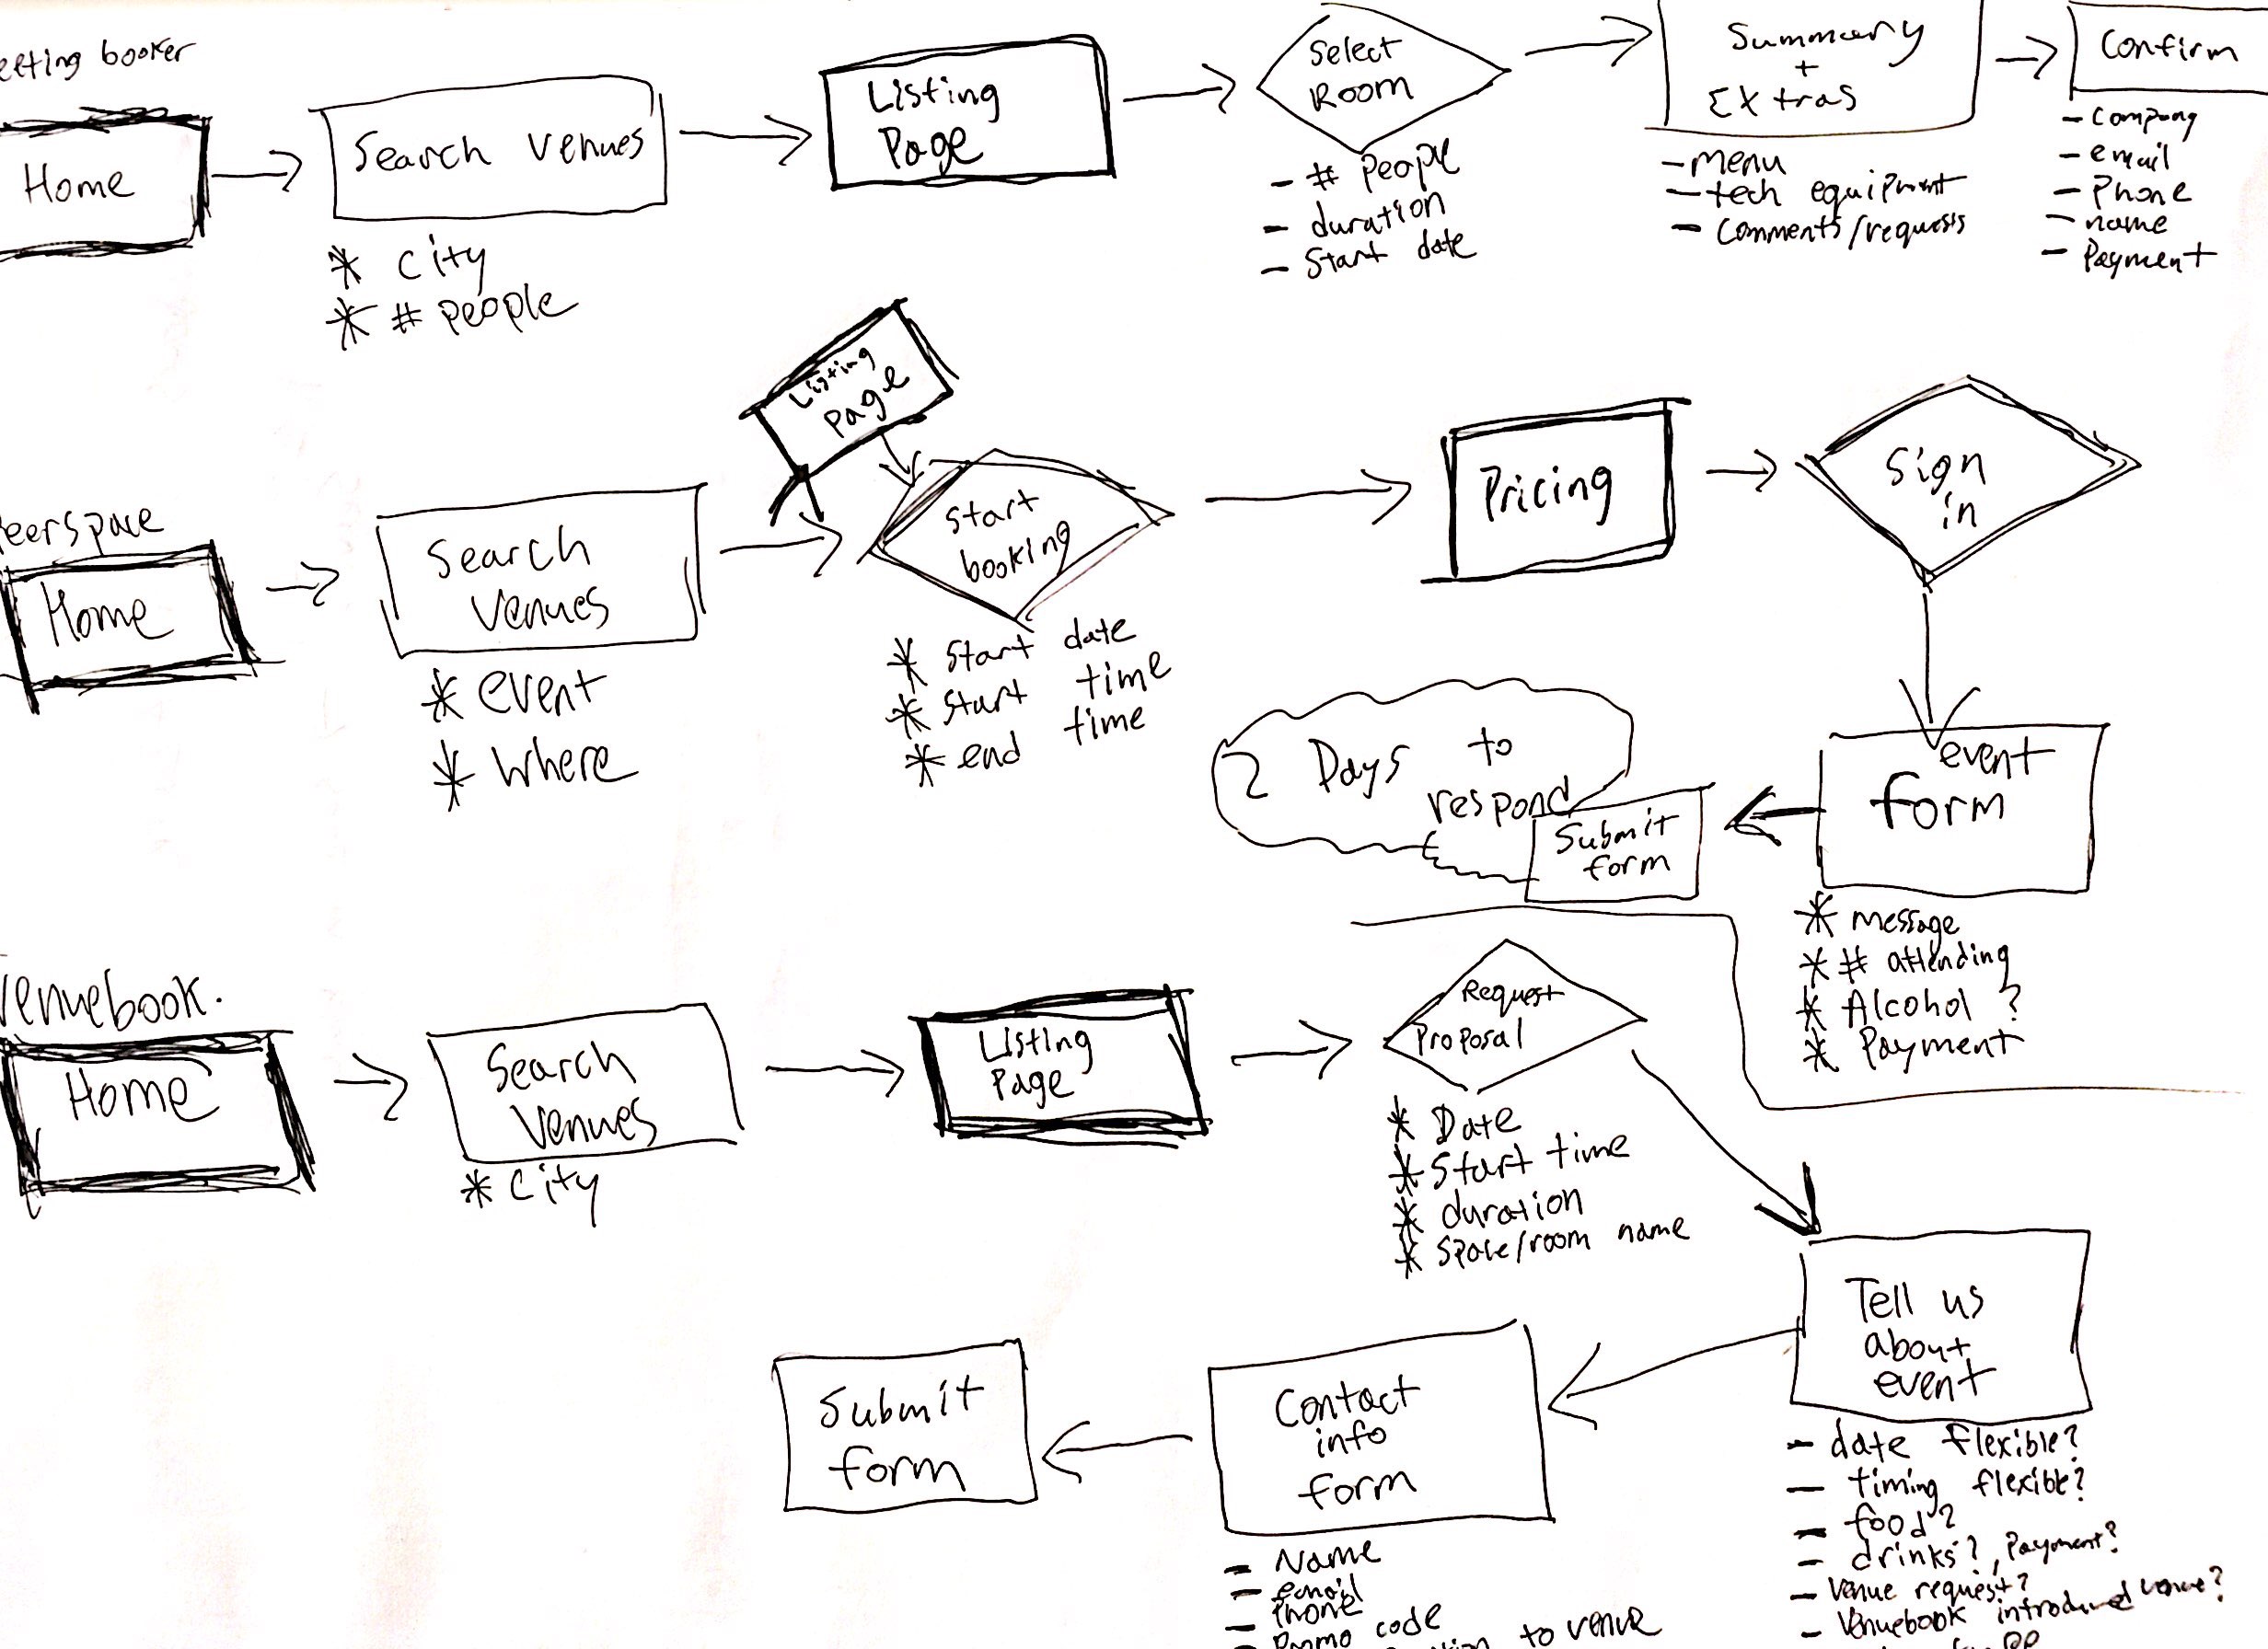 eeting booker
Home
Search Venues
* City
* # people
Listing
Page
Select
Room
- # People
- duration
- Start date
Summary
+
Extras
- menu
- tech equipment
- Comments/requests
Confirm
- Company
- email
- Phone
- name
- Payment
eerspace
Home
Search
Venues
* event
* Where
Listing
Page
Start
booking
* Start date
* Start time
* end time
Pricing
Sign
in
event
form
* message
* # attending
* Alcohol ?
* Payment
Submit
form
2 Days to
respond
Venuebook.
Home
Search
Venues
* City
Listing
Page
Request
Proposal
* Date
* Start time
* duration
* Space/room name
Tell us
about
event
- date flexible?
- timing flexible?
- food?
- drinks?, Payment?
- Venue request?
- Venuebook introduced venue?
Contact
info
form
- Name
- email
- Phone
- Promo code
to venue
Submit
form